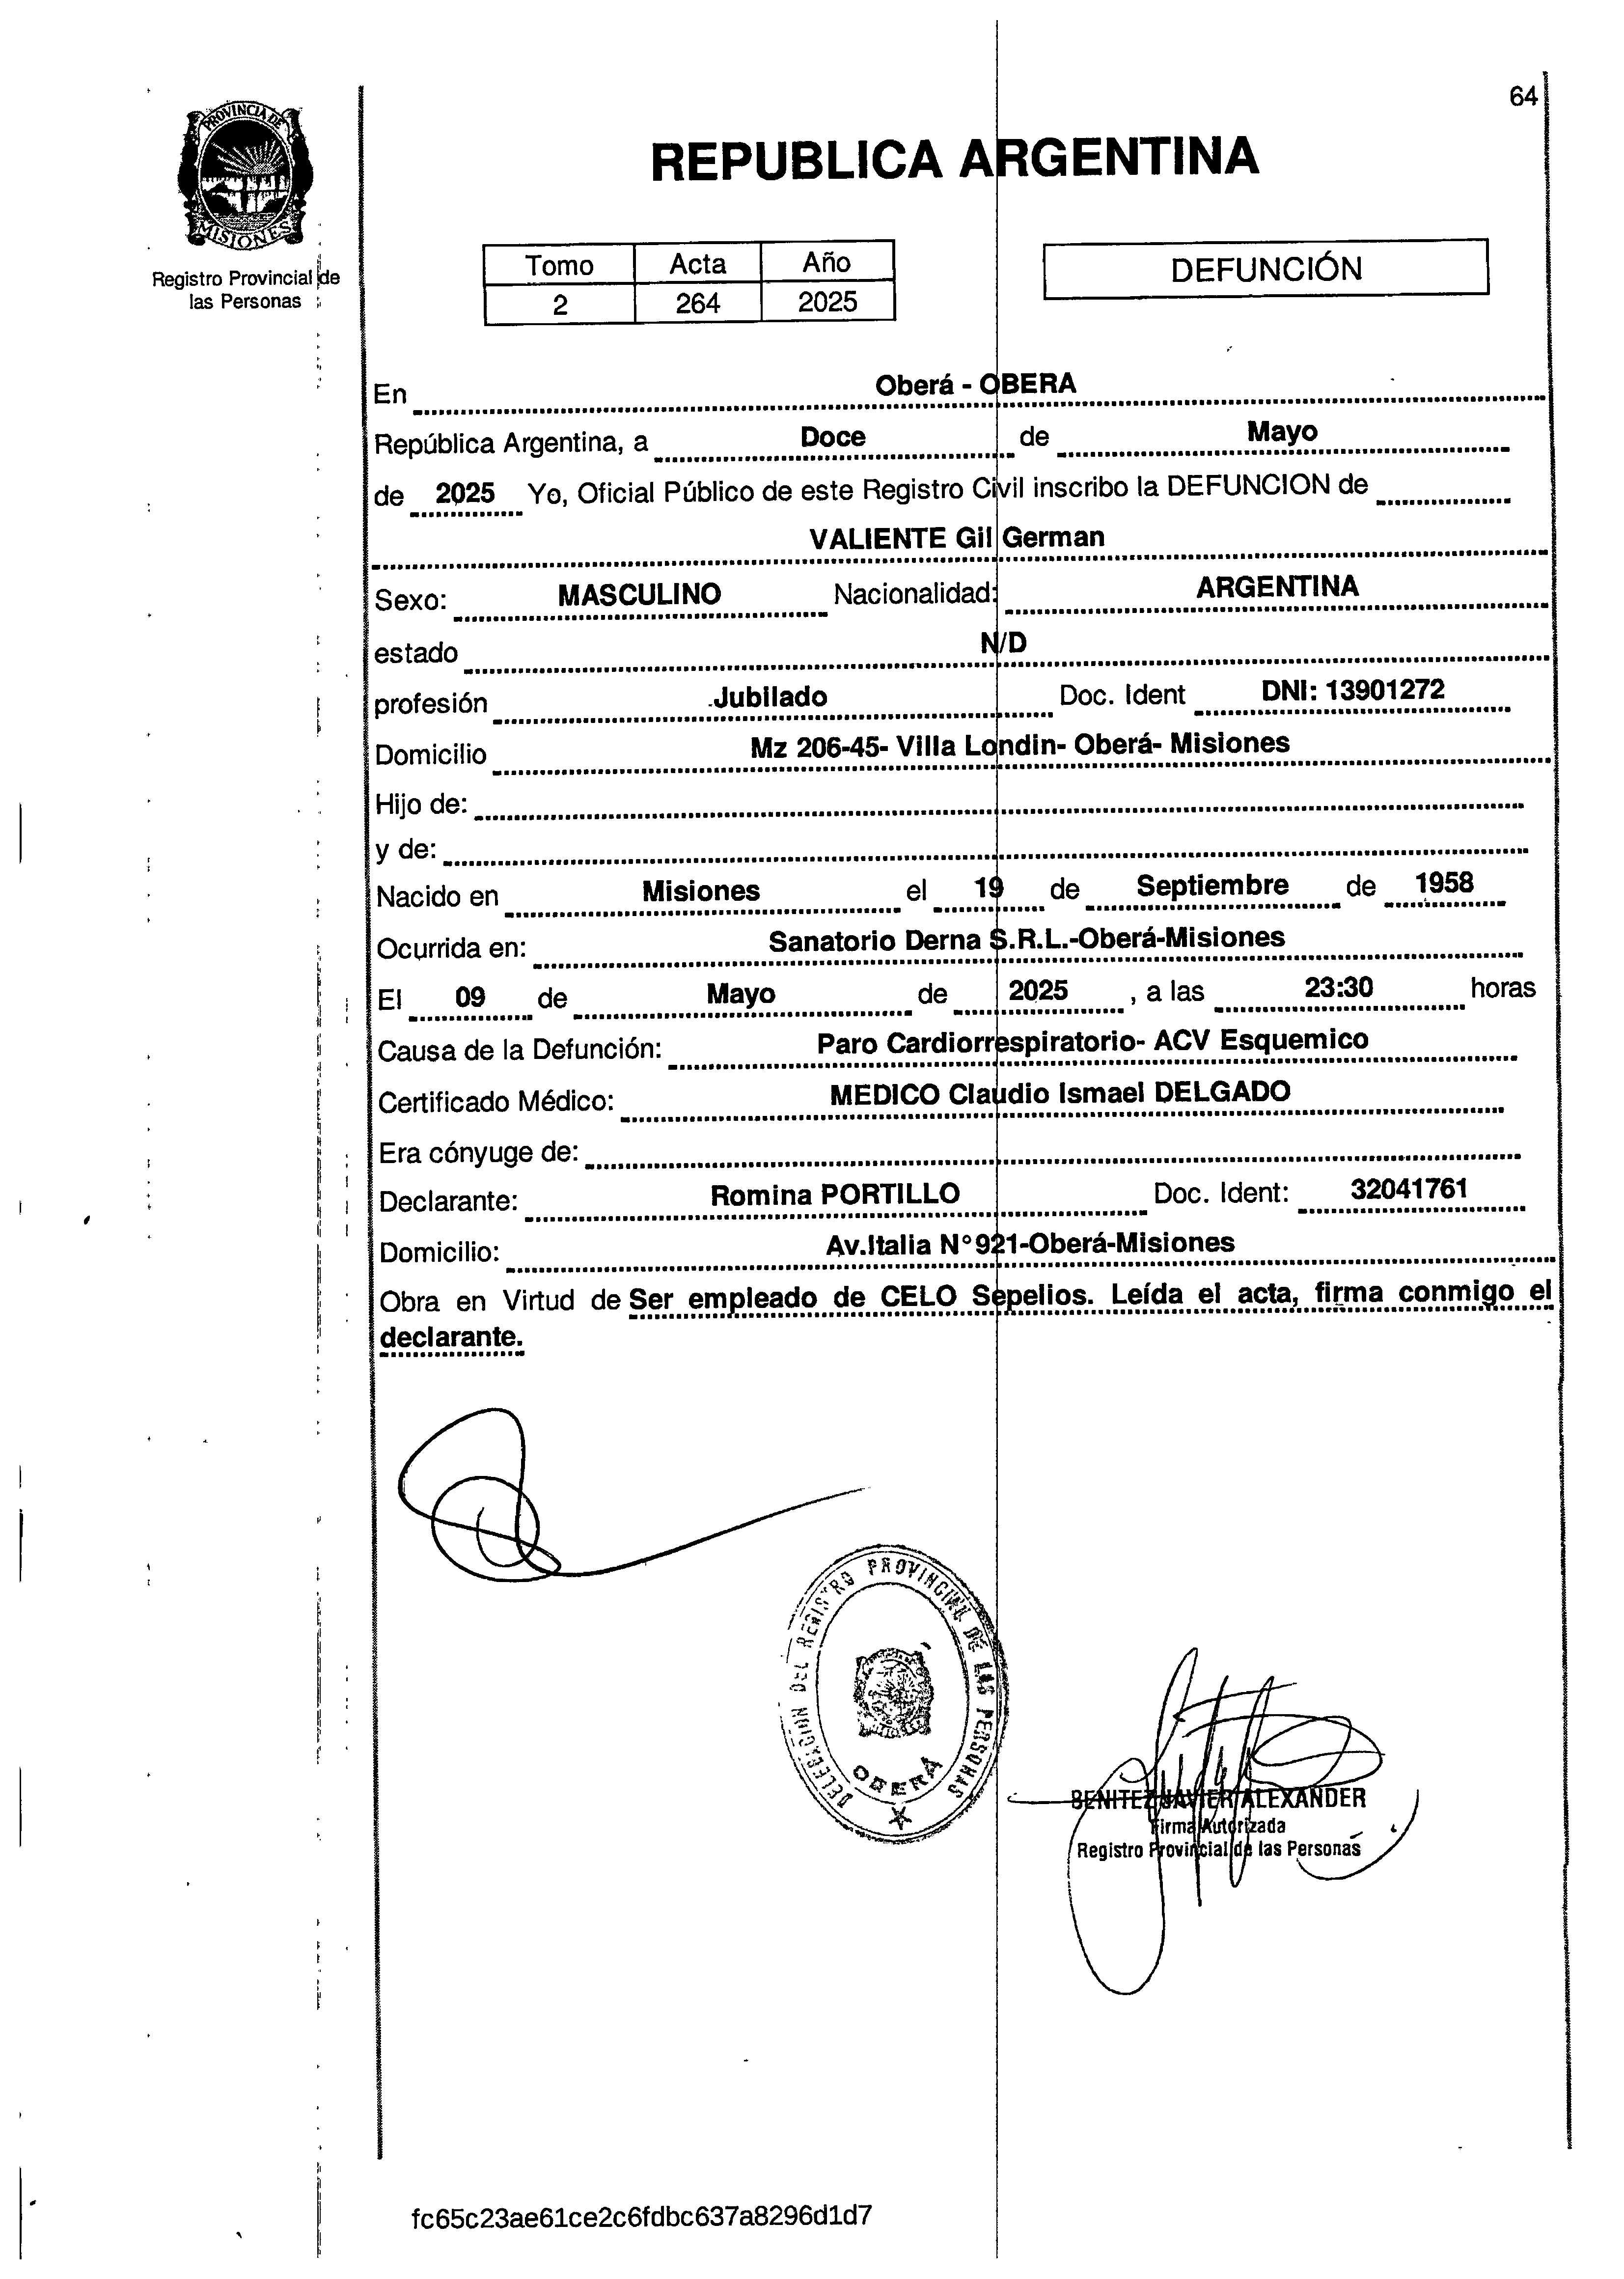 64
PROVINCIA DE
MISIONES
Registro Provincial de
las Personas
REPUBLICA ARGENTINA
Tomo Acta Año
2 264 2025
DEFUNCIÓN
En Oberá - OBERA
República Argentina, a Doce de Mayo
de 2025 Yo, Oficial Público de este Registro Civil inscribo la DEFUNCION de
VALIENTE Gil German
Sexo: MASCULINO Nacionalidad: ARGENTINA
estado N/D
profesión Jubilado Doc. Ident DNI: 13901272
Domicilio Mz 206-45- Villa Londin- Oberá- Misiones
Hijo de:
y de:
Nacido en Misiones el 19 de Septiembre de 1958
Ocurrida en: Sanatorio Derna S.R.L.-Oberá-Misiones
El 09 de Mayo de 2025 , a las 23:30 horas
Causa de la Defunción: Paro Cardiorrespiratorio- ACV Esquemico
Certificado Médico: MEDICO Claudio Ismael DELGADO
Era cónyuge de:
Declarante: Romina PORTILLO Doc. Ident: 32041761
Domicilio: Av.Italia N°921-Oberá-Misiones
Obra en Virtud de Ser empleado de CELO Sepelios. Leída el acta, firma conmigo el
declarante.
DELEGACION DEL REGISTRO PROVINCIAL DE LAS PERSONAS
OBERÁ
BENITEZ JAVIER ALEXANDER
Firma Autorizada
Registro Provincial de las Personas
fc65c23ae61ce2c6fdbc637a8296d1d7